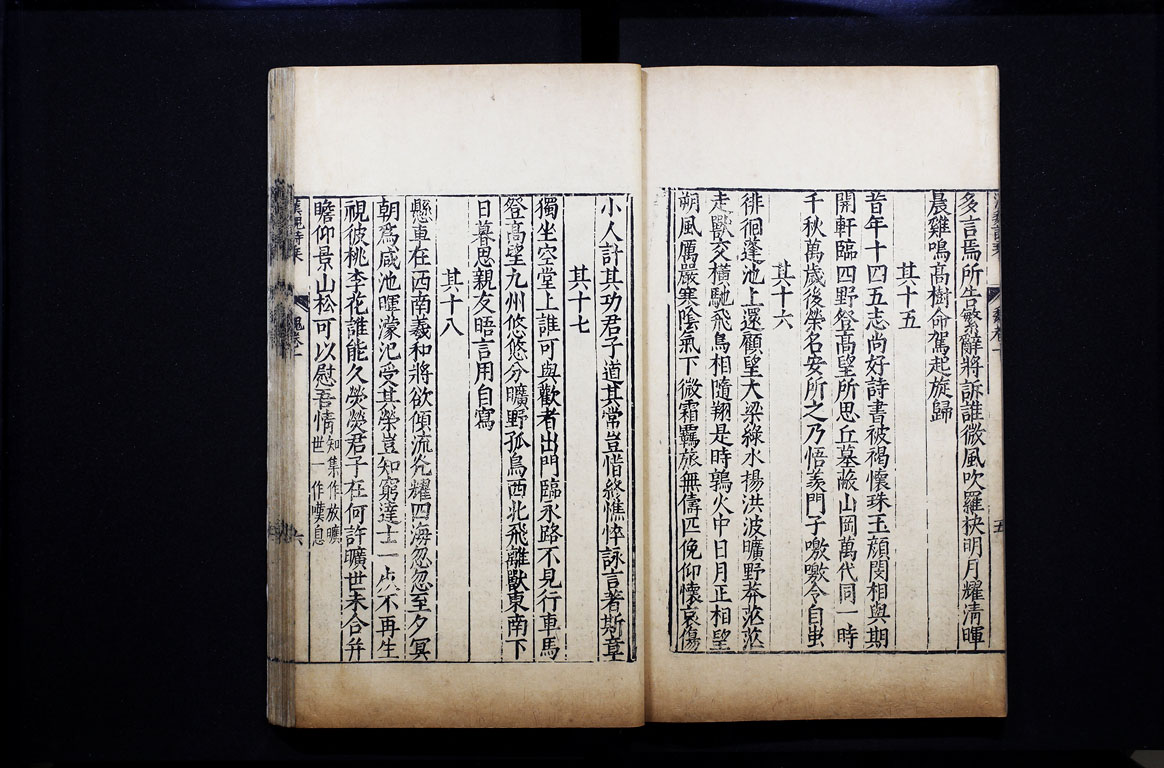 多言焉所告繁辭將訴誰微風吹羅袂明月耀淸暉
晨雞鳴高樹命駕起旋歸
其十五
昔年十四五志尚好詩書被褐懷珠玉顔閔相與期
開軒臨四野登高望所思丘墓蔽山岡萬代同一時
千秋萬歲後榮名安所之乃悟羨門子噭噭令自蚩
其十六
徘徊蓬池上還顧望大梁綠水揚洪波曠野莽茫茫
走獸交橫馳飛鳥相隨翔是時鶉火中日月正相望
朔風厲嚴寒陰氣下微霜羈旅無儔匹俛仰懷哀傷
五
小人計其功君子道其常豈惜終憔悴詠言著斯章
其十七
獨坐空堂上誰可與歡者出門臨永路不見行車馬
登高望九州悠悠分曠野孤鳥西北飛離獸東南下
日暮思親友晤言用自寫
其十八
懸車在西南羲和將欲傾流光耀四海忽忽至夕冥
朝爲咸池暉濛汜受其榮豈知窮達士一死不再生
視彼桃李花誰能久熒熒君子在何許曠世未合幷
瞻仰景山松可以慰吾情
知集作放曠
世一作嘆息
漢魏詩乘
魏卷一
六